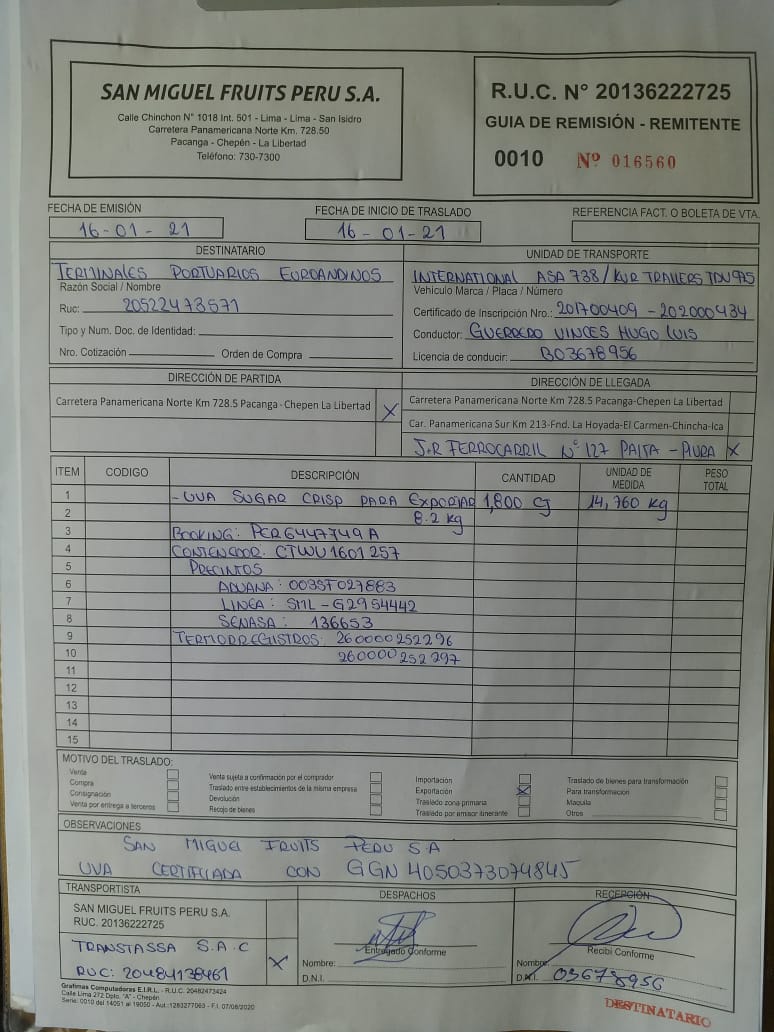 SAN MIGUEL FRUITS PERU S.A.
Calle Chinchon N° 1018 Int. 501 - Lima - Lima - San Isidro
Carretera Panamericana Norte Km. 728.50
Pacanga - Chepén - La Libertad
Teléfono: 730-7300
R.U.C. N° 20136222725
GUIA DE REMISIÓN - REMITENTE
0010 Nº 016560
FECHA DE EMISIÓN
16-01-21
FECHA DE INICIO DE TRASLADO
16-01-21
REFERENCIA FACT. O BOLETA DE VTA.
DESTINATARIO
TERMINALES PORTUARIOS EUROANDINOS
Razón Social / Nombre
Ruc: 20522473571
Tipo y Num. Doc. de Identidad:
Nro. Cotización Orden de Compra
UNIDAD DE TRANSPORTE
INTERNATIONAL ASA 738 / KUR TRAILERS TDU 975
Vehiculo Marca / Placa / Número
Certificado de Inscripción Nro.: 201700409 - 202000434
Conductor: GUERRERO VINCES HUGO LUIS
Licencia de conducir: B03678956
DIRECCIÓN DE PARTIDA
Carretera Panamericana Norte Km 728.5 Pacanga-Chepen La Libertad X
DIRECCIÓN DE LLEGADA
Carretera Panamericana Norte Km 728.5 Pacanga-Chepen La Libertad
Car. Panamericana Sur Km 213-Fnd. La Hoyada-El Carmen-Chincha-Ica
J.R FERROCARRIL N° 127 PAITA - PIURA X
ITEM CODIGO DESCRIPCIÓN CANTIDAD UNIDAD DE MEDIDA PESO TOTAL
1 - UVA SUGAR CRISP PARA EXPORTAR 1,800 CJ 14,760 kg
2 8.2 kg
3 BOOKING: PER6447749A
4 CONTENEDOR: CTWU1601257
5 PRECINTOS
6 ADUANA: 0035F027883
7 LINEA: SML-G2954442
8 SENASA: 136653
9 TERMORREGISTROS: 260000252296
10 260000252297
11
12
13
14
15
MOTIVO DEL TRASLADO:
Venta
Compra
Consignación
Venta por entrega a terceros
Venta sujeta a confirmación por el comprador
Traslado entre establecimientos de la misma empresa
Devolución
Recojo de bienes
Importación
Exportación X
Traslado zona primaria
Traslado por emisor itinerante
Traslado de bienes para transformación
Para transformación
Maquila
Otros
OBSERVACIONES
SAN MIGUEL FRUITS PERU SA
UVA CERTIFICADA CON GGN 4050373074845
TRANSPORTISTA
SAN MIGUEL FRUITS PERU S.A.
RUC. 20136222725
TRANSTASSA S.A.C X
RUC: 20484138461
DESPACHOS
Entregado Conforme
Nombre:
D.N.I.
RECEPCIÓN
Recibi Conforme
Nombre:
D.N.I. 03678956
Grafimas Computadoras E.I.R.L. - R.U.C. 20482473424
Calle Lima 272 Dpto. "A" - Chepén
Serie: 0010 del 14051 al 19050 - Aut.:1283277063 - F.I. 07/08/2020
DESTINATARIO